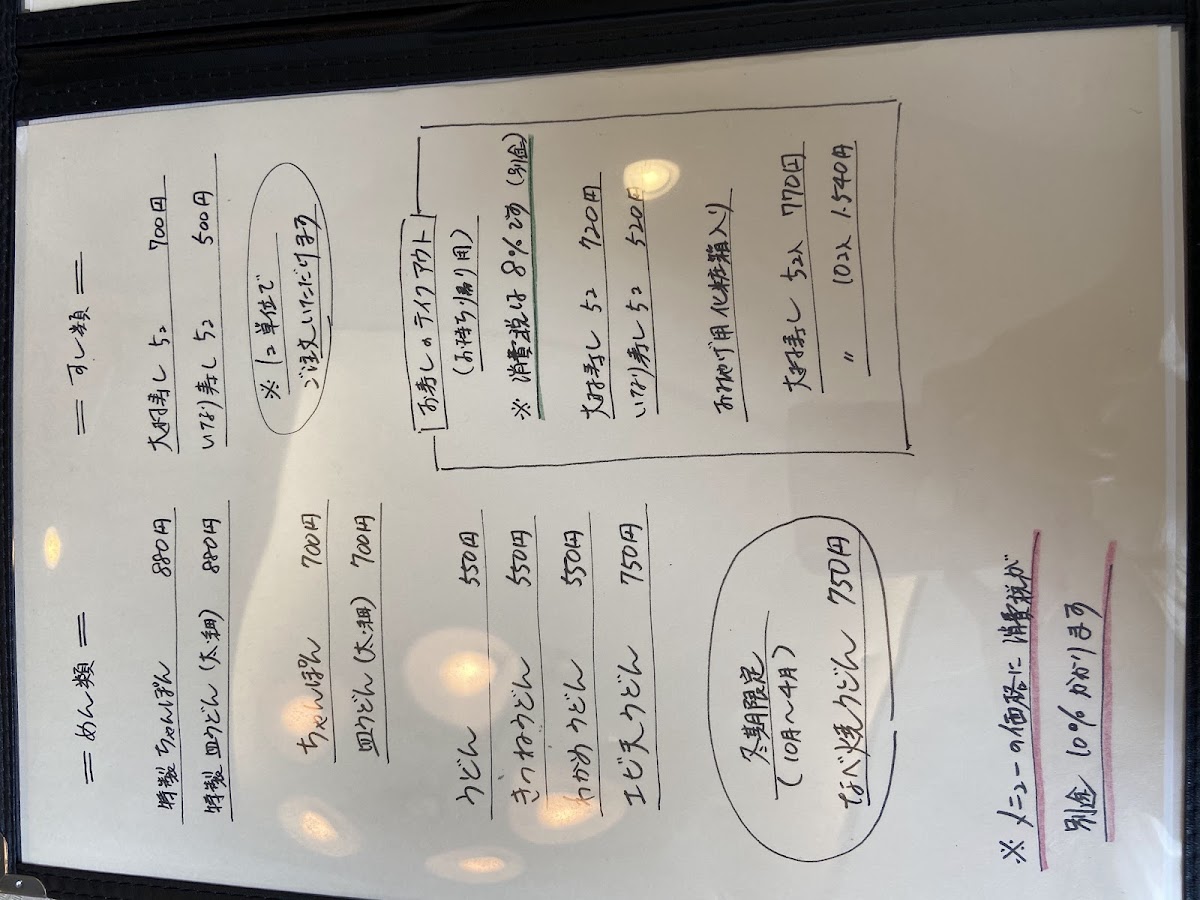 ＝ めん類 ＝
特製 ちゃんぽん 880円
特製 皿うどん (太・細) 880円
ちゃんぽん 700円
皿うどん (太・細) 700円
うどん 550円
きつねうどん 550円
わかめうどん 550円
エビ天うどん 750円
冬期限定
(10月〜4月)
なべ焼うどん 750円
＝ すし類 ＝
大村寿し 5コ 700円
いなり寿し 5コ 500円
※ 1コ単位で
ご注文いただけます
お寿しのテイクアウト
(お持ち帰り用)
※ 消費税は 8%です (別金)
大村寿し 5コ 720円
いなり寿し 5コ 520円
おみやげ用 化粧箱入り
大村寿し 5コ入 770円
〃 10コ入 1.540円
※ メニューの価格に 消費税が
別途 10% かかります